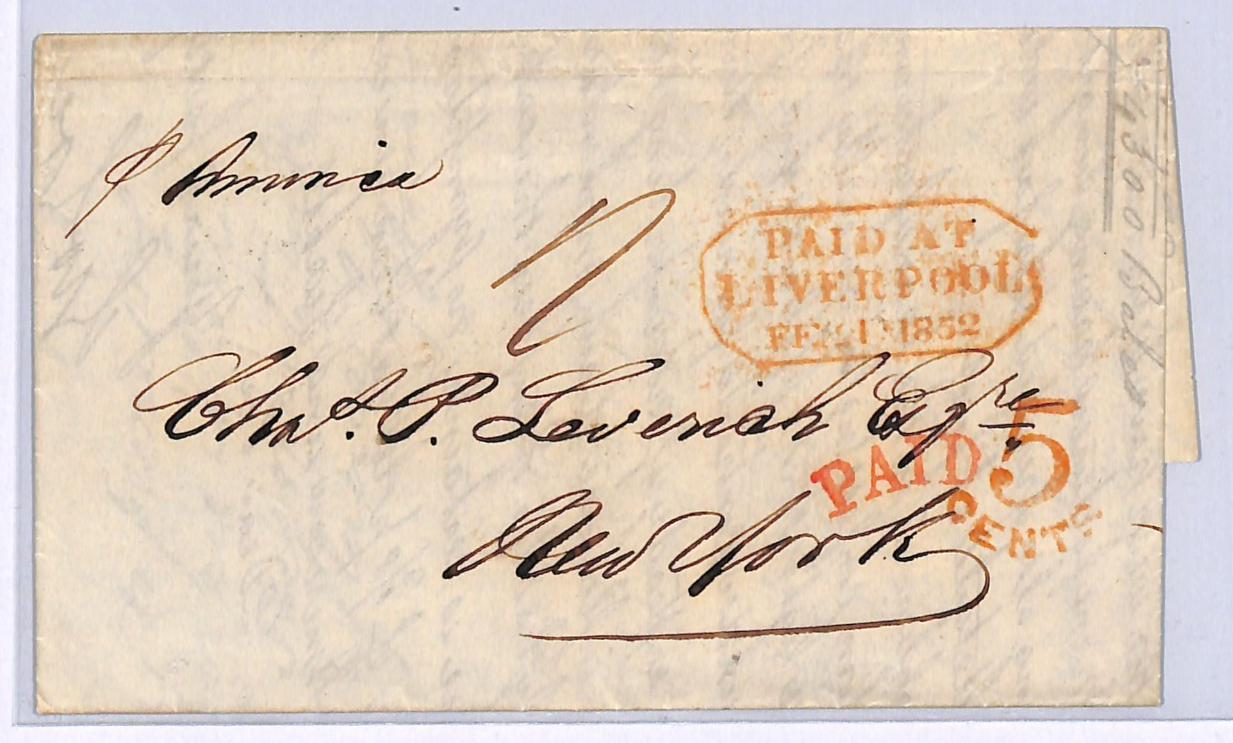 p America
1
PAID AT
LIVERPOOL
1852
Chas. P. Leverich Esqre
PAID 5
CENTS
New York
4300 Bales